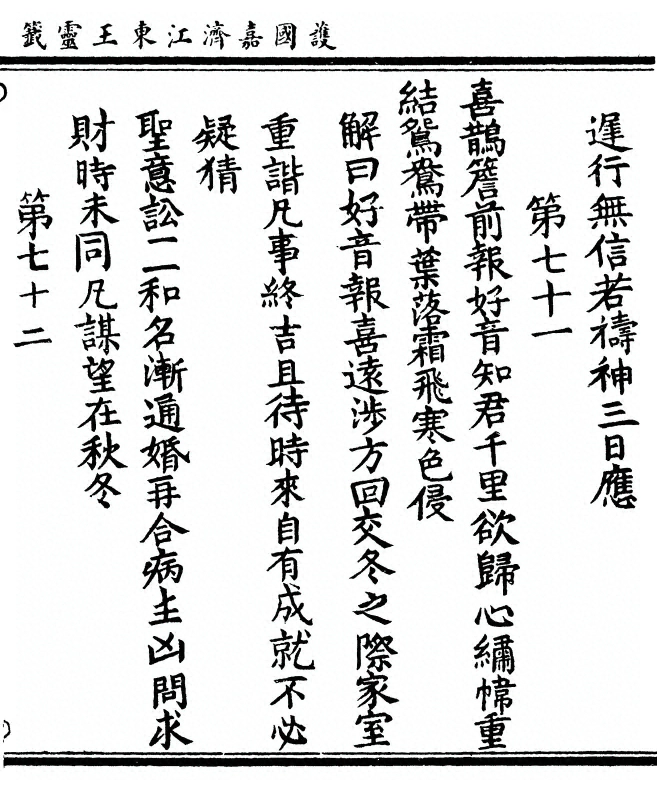 護國嘉濟江東王靈籤
遲行無信若禱神三日應
第七十一
喜鵲簷前報好音知君千里欲歸心繡幃重
結鴛鴦帶葉落霜飛寒色侵
解曰好音報喜遠涉方回交冬之際家室
重諧凡事終吉且待時來自有成就不必
疑猜
聖意訟二和名漸通婚再合病主凶問求
財時未同凡謀望在秋冬
第七十二